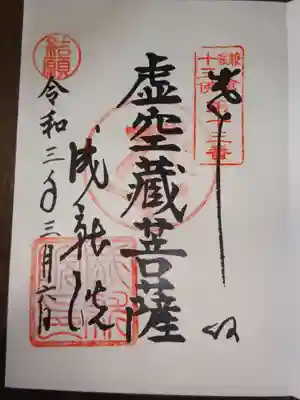 奉拝
鎌倉
十三佛
第十三番
虚空藏菩薩
成就院
令和三年三月六日
結願